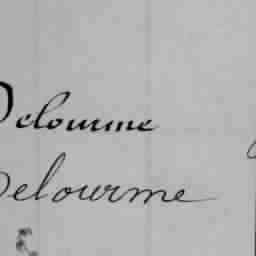 Delourme
Delourme